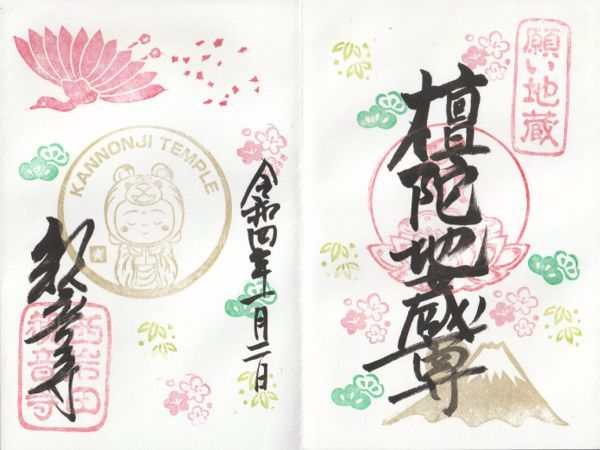 願い地蔵
檀陀地蔵尊
令和四年一月二日
KANNONJI TEMPLE
観音寺